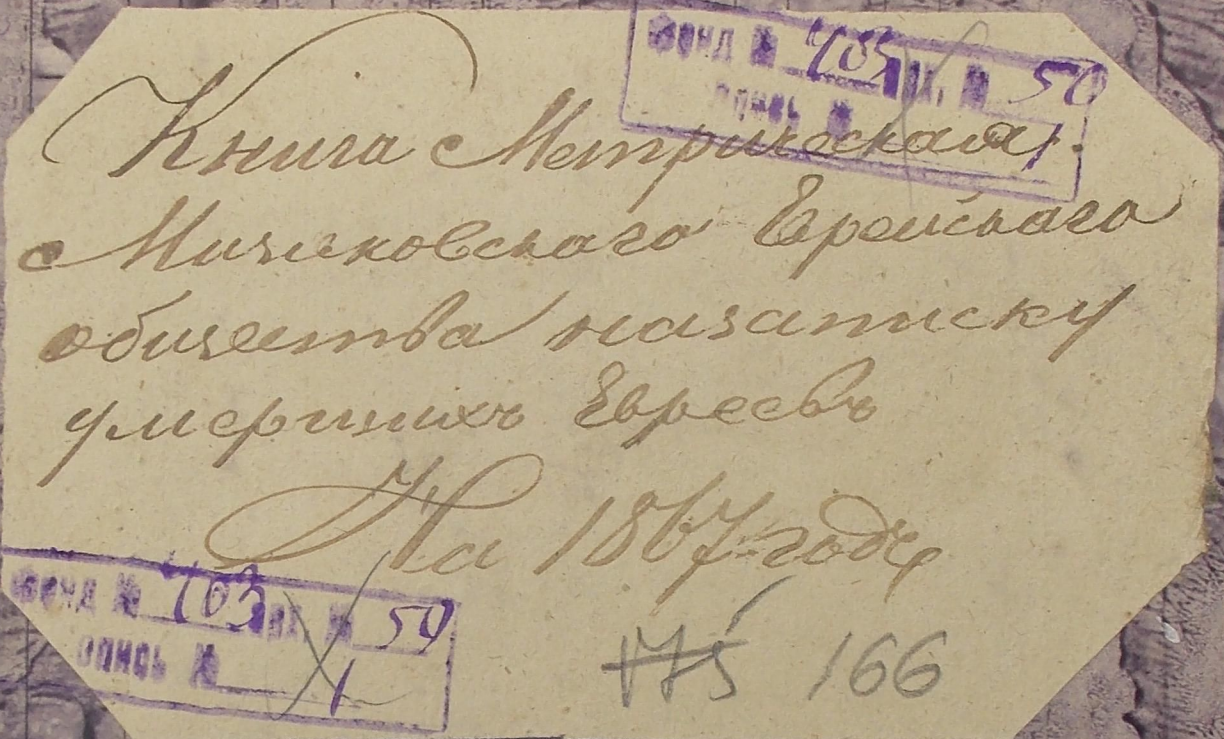 Фонд № 703 ед. № 50
опись № 1
Книга Метрическая.
Еврейскаго
общества на записку
умершихъ Евреевъ
На 1867 годъ
Фонд № 703 ед. № 50
опись № 1
175 166